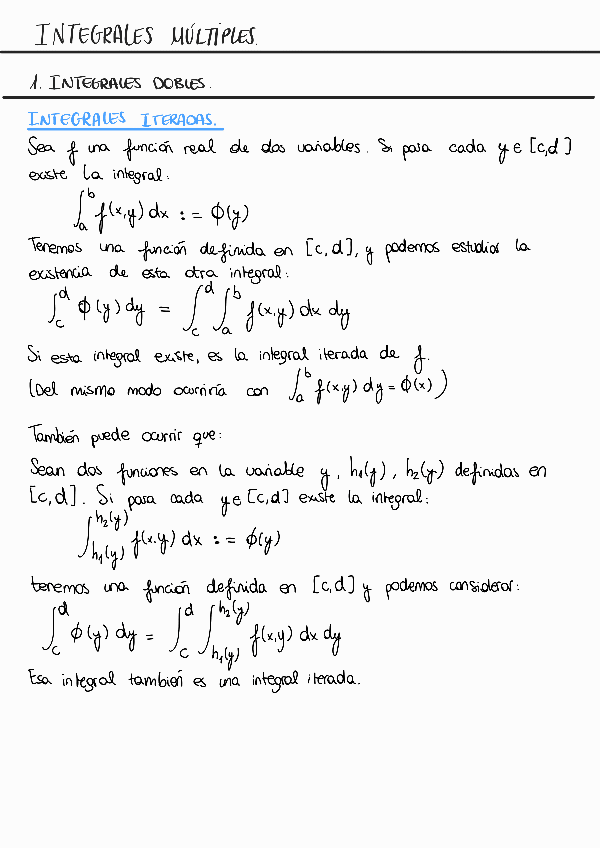 INTEGRALES MÚLTIPLES.
1. INTEGRALES DOBLES.
INTEGRALES ITERADAS.
Sea f una función real de dos variables. Si para cada y ∈ [c,d]
existe la integral:
∫_a^b f(x,y) dx := ϕ(y)
Tenemos una función definida en [c,d], y podemos estudiar la
existencia de esta otra integral:
∫_c^d ϕ(y) dy = ∫_c^d ∫_a^b f(x,y) dx dy
Si esta integral existe, es la integral iterada de f.
(Del mismo modo ocurriría con ∫_a^b f(x,y) dy = ϕ(x))
También puede ocurrir que:
Sean dos funciones en la variable y, h₁(y), h₂(y) definidas en
[c,d]. Si para cada y ∈ [c,d] existe la integral:
∫_{h₁(y)}^{h₂(y)} f(x,y) dx := ϕ(y)
tenemos una función definida en [c,d] y podemos considerar:
∫_c^d ϕ(y) dy = ∫_c^d ∫_{h₁(y)}^{h₂(y)} f(x,y) dx dy
Esa integral también es una integral iterada.